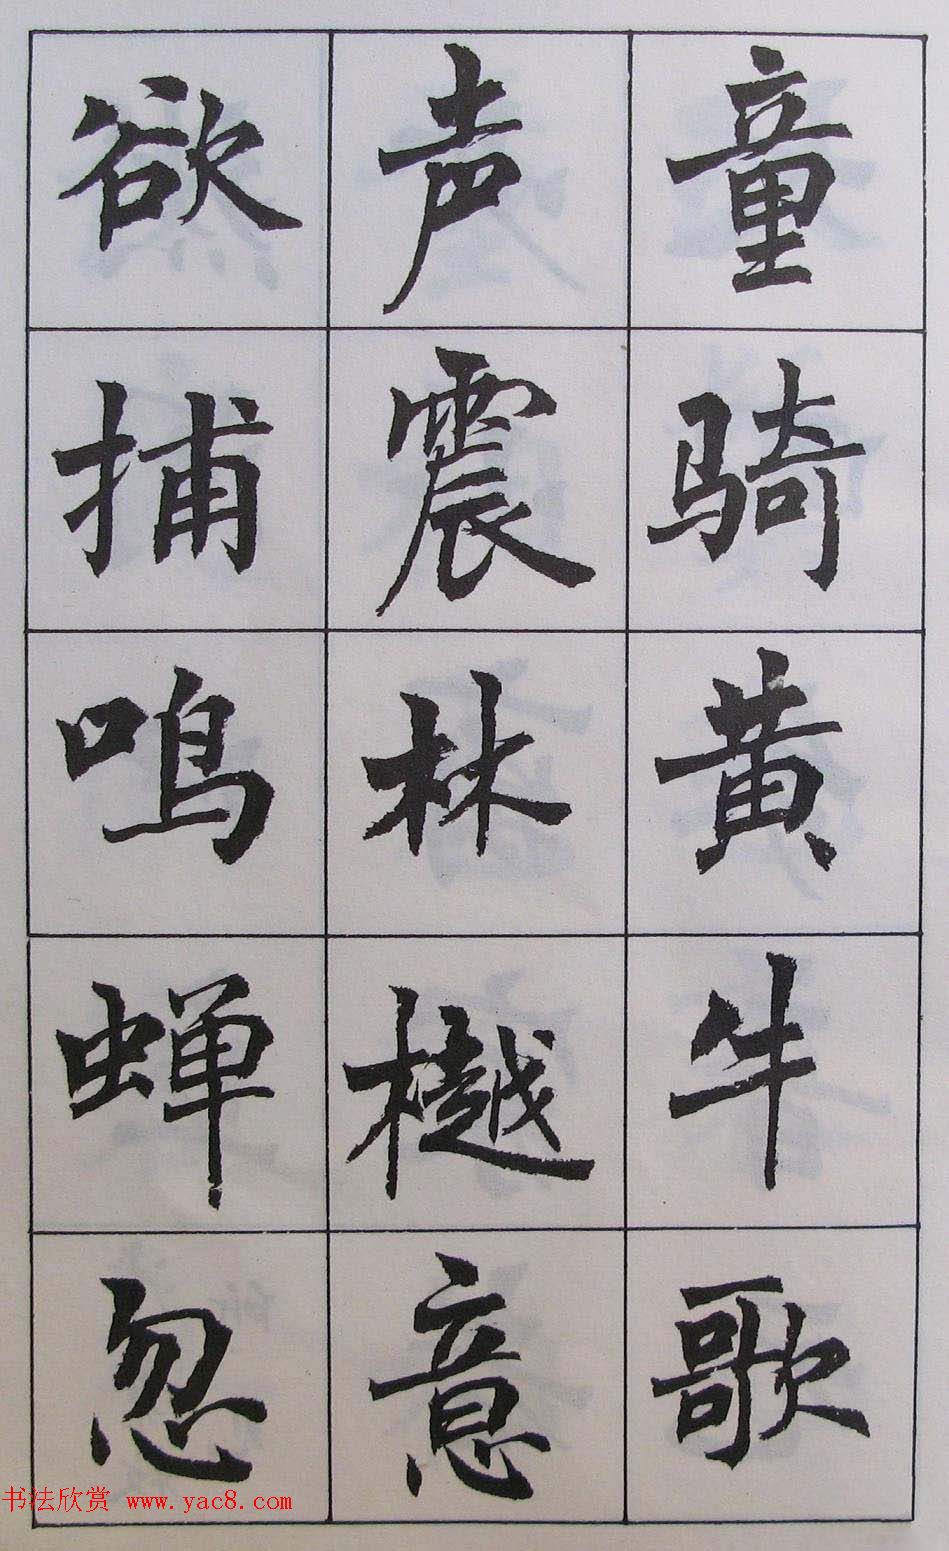 童骑黄牛歌
声震林樾意
欲捕鸣蝉忽
书法欣赏 www.yac8.com